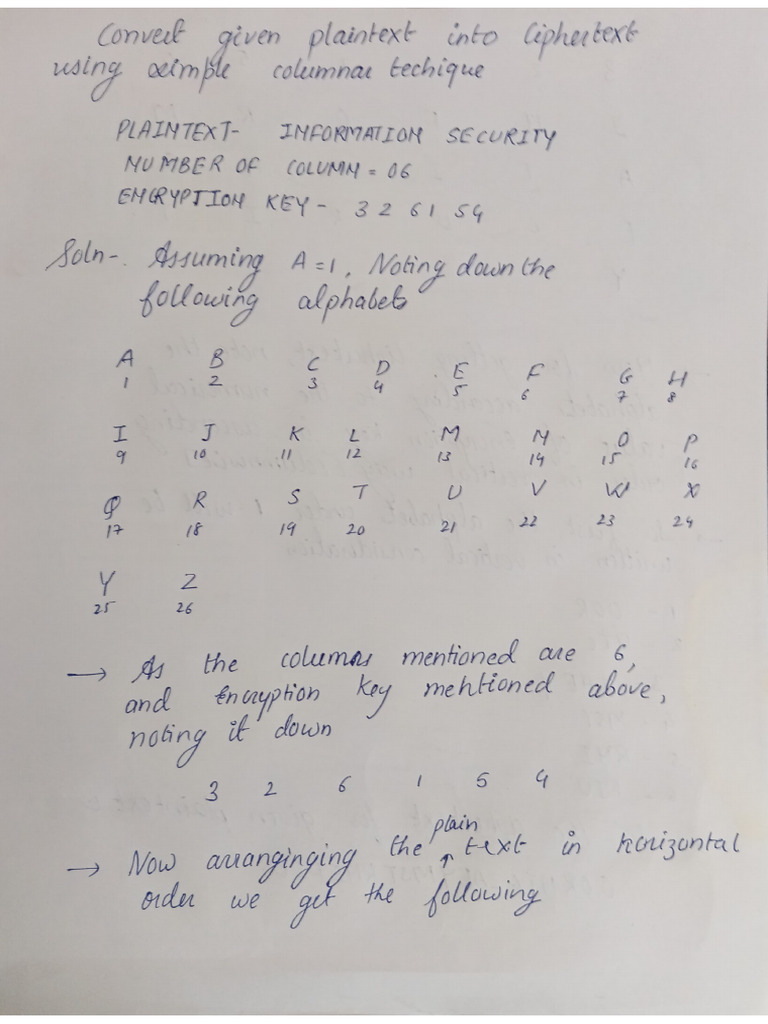 Convert given plaintext into Ciphertext
using simple columnar techique
PLAINTEXT- INFORMATION SECURITY
NUMBER OF COLUMN = 06
ENCRYPTION KEY - 3 2 6 1 5 4
Soln-. Assuming A = 1, Noting down the
following alphabets
A B C D E F G H
1 2 3 4 5 6 7 8
I J K L M N O P
9 10 11 12 13 14 15 16
Q R S T U V W X
17 18 19 20 21 22 23 24
Y Z
25 26
→ As the columns mentioned are 6,
and Encryption key mehtioned above,
noting it down
3 2 6 1 5 4
→ Now arranginging the plain text in horizontal
order we get the following